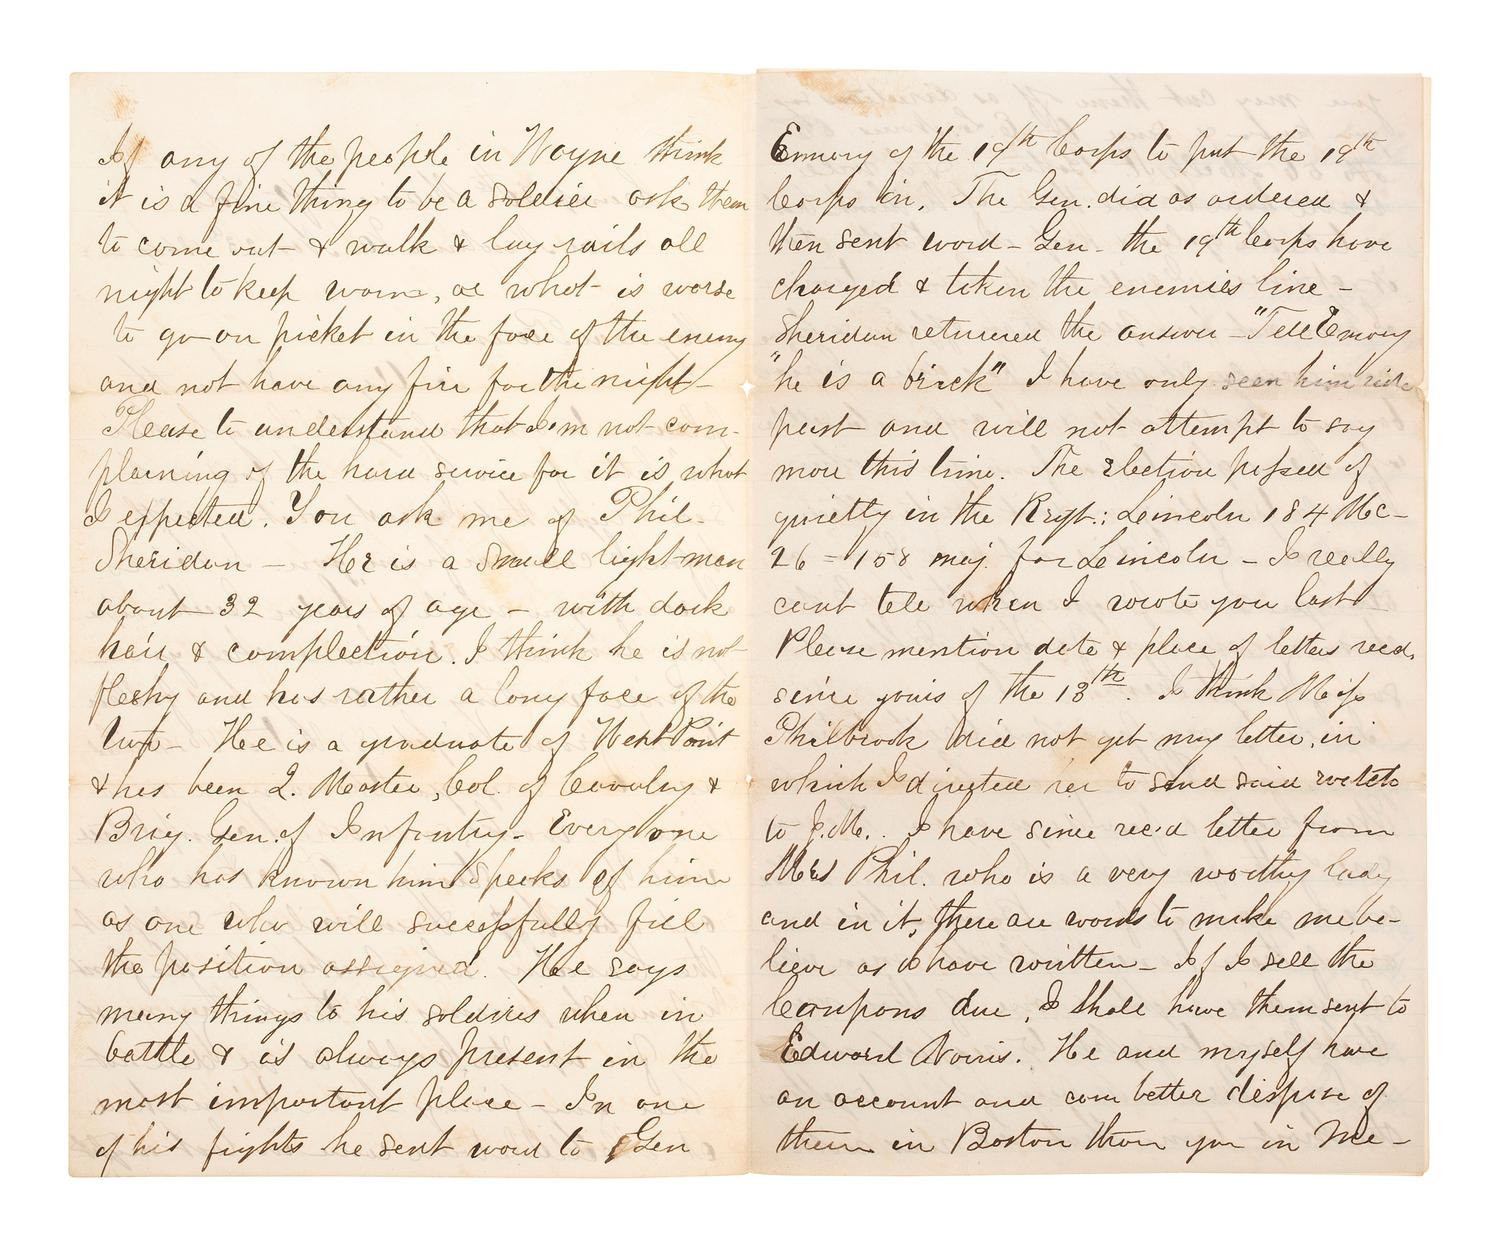 If any of the people in Wayne think
it is a fine thing to be a soldier ask them
to come out & walk & lay rails all
night to keep warm, or what is worse
to go on picket in the face of the enemy
and not have any fire for the night -
Please to understand that I'm not com-
plaining of the hard service for it is what
I expected. You ask me of Phil-
Sheridan - He is a small light man
about 32 years of age - with dark
hair & complection. I think he is not
fleshy and has rather a long face of the
two - He is a graduate of West Point
& has been Q. Master, Col. of Cavalry &
Brig. Gen. of Infantry - Every one
who has known him speaks of him
as one who will successfully fill
the position assigned. He says
many things to his soldiers when in
battle & is always present in the
most important place - In one
of his fights he sent word to Gen
Emmory of the 19th Corps to put the 19th
Corps in. The Gen. did as ordered &
then sent word - Gen - the 19th Corps have
charged & taken the enemies line -
Sheridan returned the answer - "Tell Emory
"he is a brick" I have only seen him ride
past and will not attempt to say
more this time. The election passed of
quietly in the Regt.: Leincoln 184 Mc-
26 = 158 maj. for Leincoln - I really
cant tell when I wrote you last
Please mention date & place of letters recd.
since yours of the 13th. I think Miss
Philbrook did not get my letter, in
which I directed her to send said watch
to J.M.. I have since rec'd letter from
Mrs Phil. who is a very worthy lady
and in it, there are words to make me be-
lieve as I have written - If I sell the
Coupons due, I shall have them sent to
Edward Norris. He and myself have
an account and can better dispose of
them in Boston than you in Me -